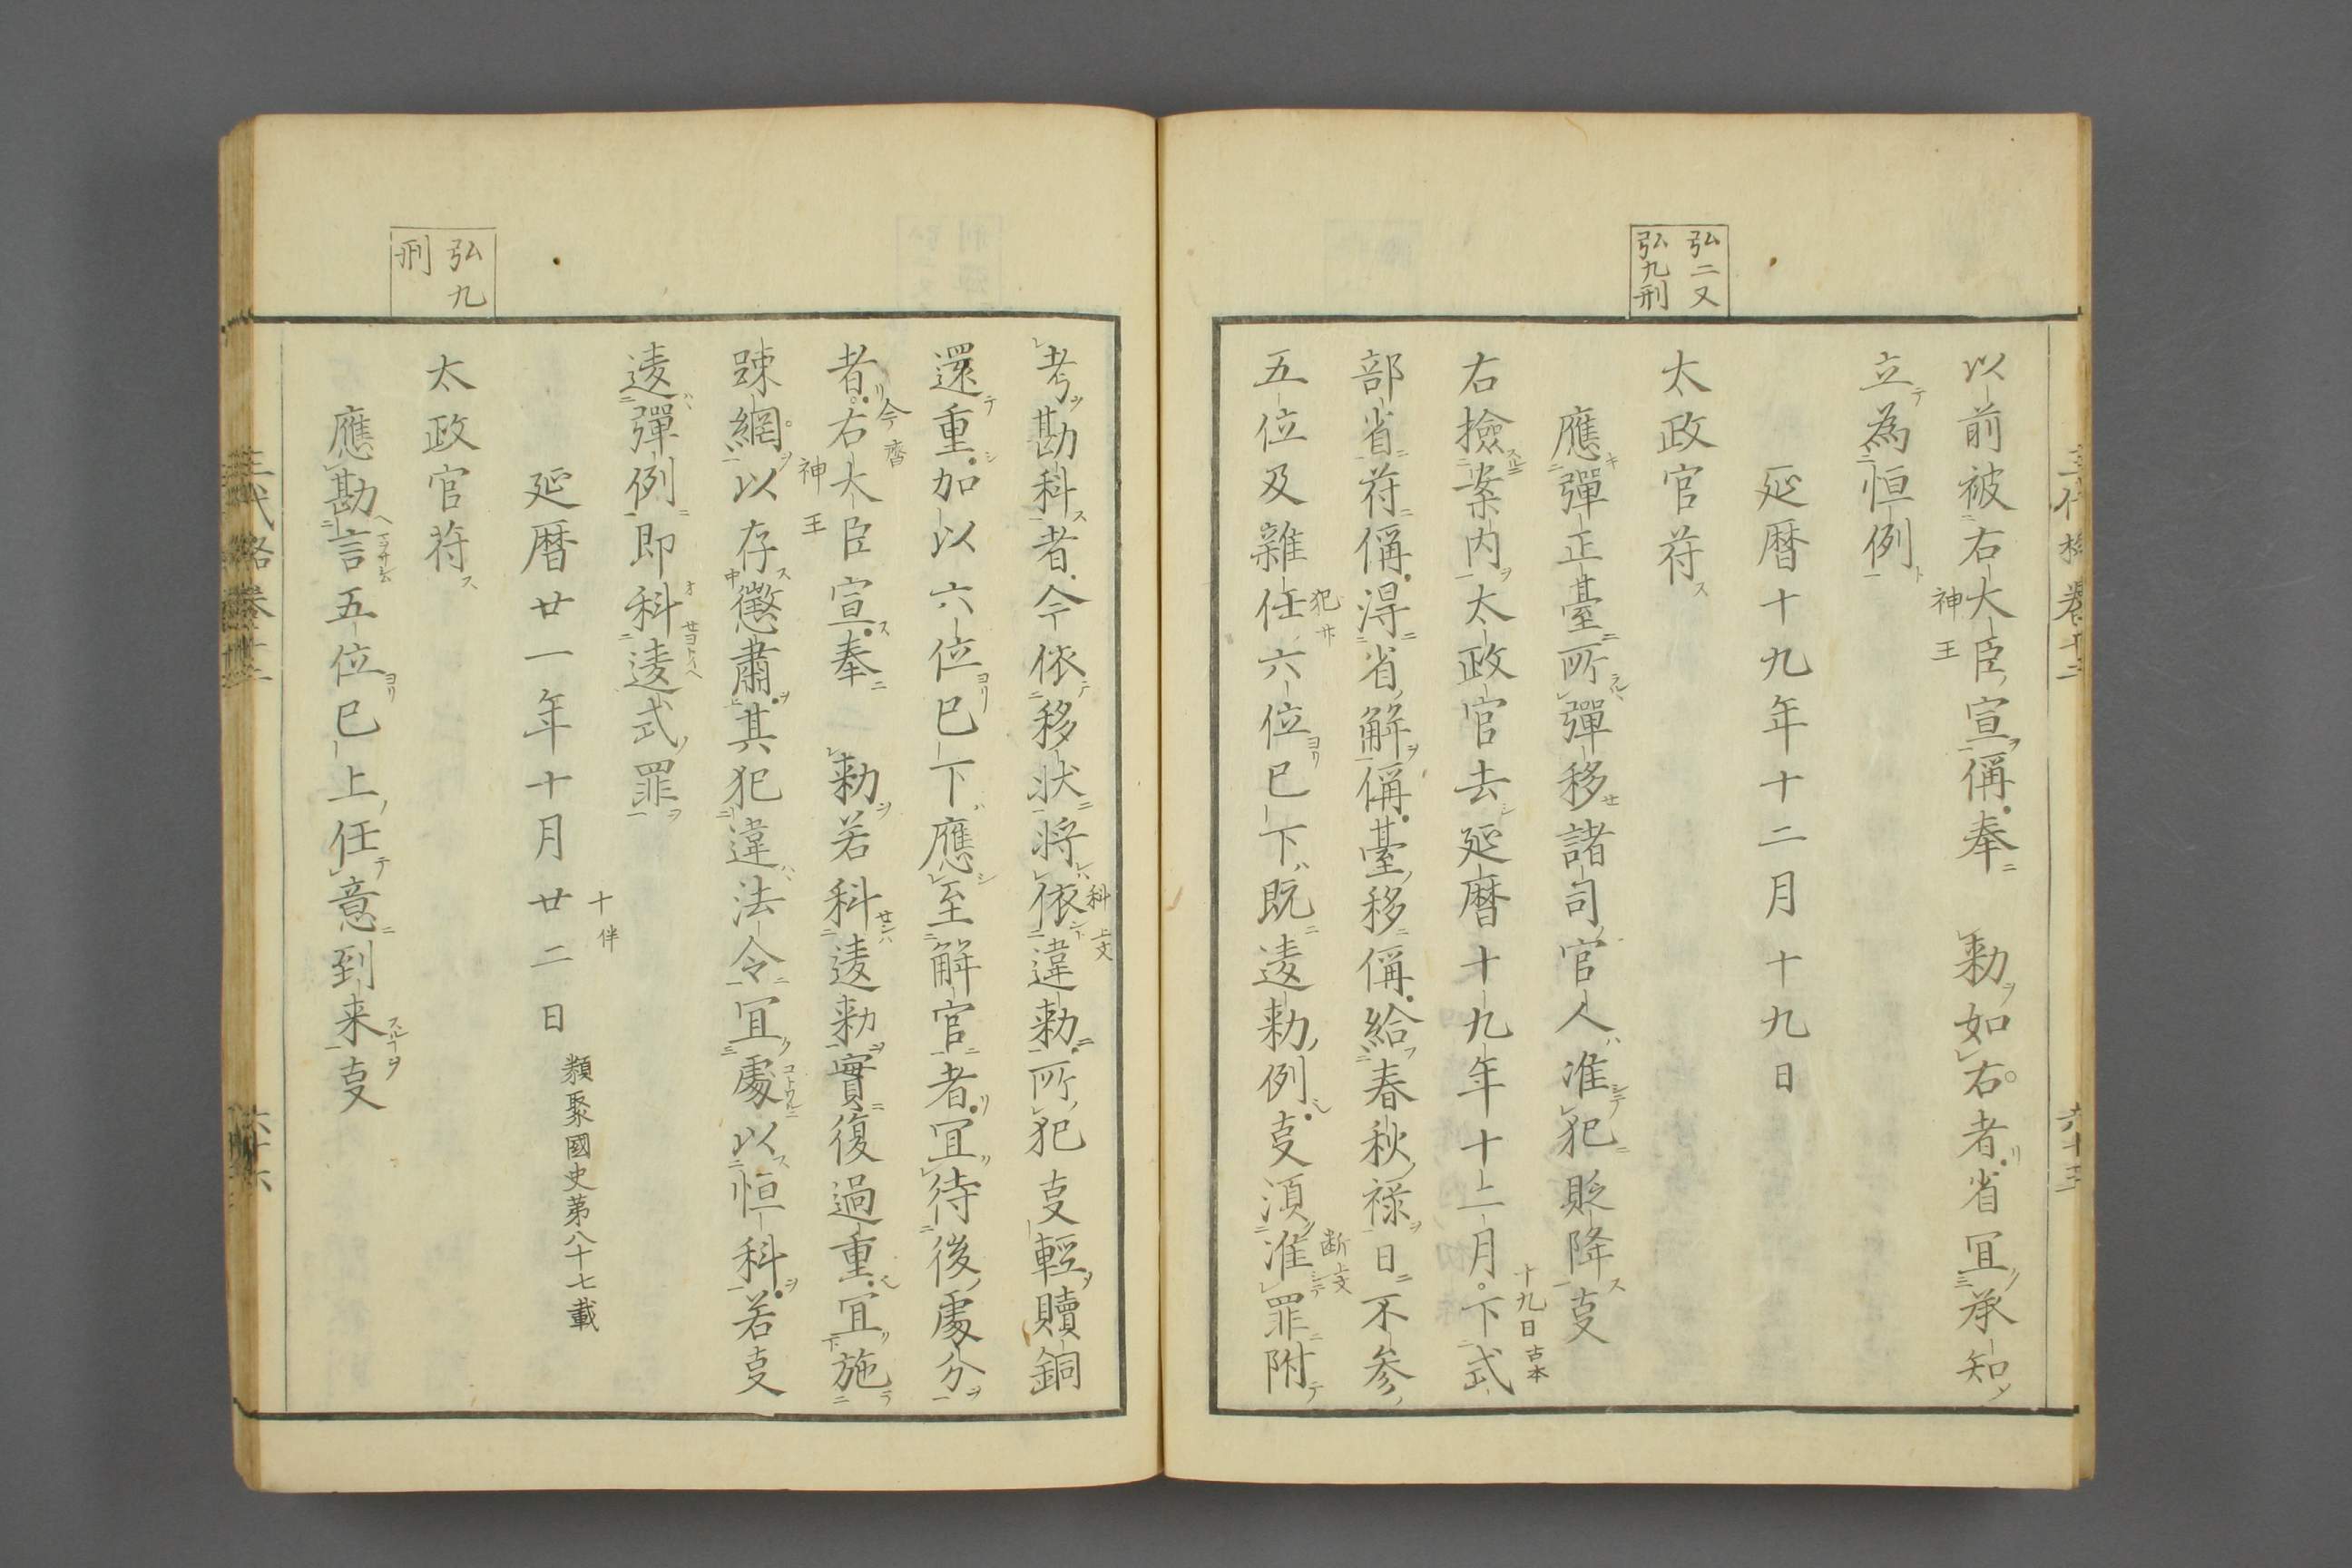 弘二又
弘九刑
以前被右大臣宣偁奉　勅如右者省冝承知
神王
立為恒例
延暦十九年十二月十九日
太政官符
應彈正臺所彈移諸司官人准犯貶降㕝
右撿案内太政官去延暦十九年十二月下式
十九日古本
部省符偁得省解偁臺移偁給春秋禄日不参
五位及雜任六位已下既逺勅例㕝須准罪附
犯
断上文
弘九
刑
考勘科者今依移状将依違勅所犯㕝輕贖銅
科上文
還重加以六位已下應至解官者冝待後處分
者右大臣宣奉　勅若科逺勅實復過重冝施
今
神王
踈網以存懲肅其犯違法令冝處以恒科若㕝
逺彈例即科逺式罪
延暦廿一年十月廿二日
十伴
類聚國史第八十七載
太政官符
應勘言五位已上任意到来㕝